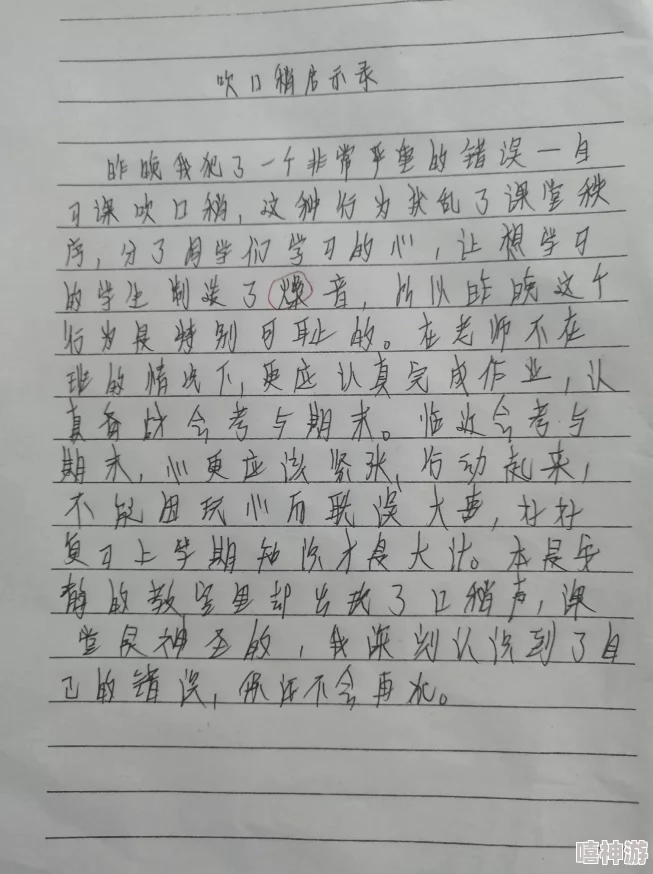 吹口稍启示录
昨晚我犯了一个非常严重的错误一自
习课吹口稍，这种行为扰乱了课堂秩
序，分了同学们学习的心，让想学习
的学生制造了燥音，所以昨晚这个
行为是特别可耻的。在老师不在
班的情况下，更应认真完成作业，认
真备战会考与期末。临近会考与
期末，心更应该紧张、行动起来，
不能因玩心而耽误大事，扎扎
复习上学期知识才是大计。本是安
静的教室里却出现了口稍声，课
堂是神圣的，我深刻认识到了自
己的错误，保证不会再犯。
嘻神游